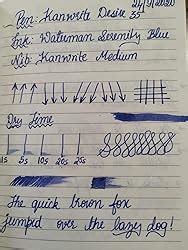 21/9/2020
Pen: Kanwrite Desire
Ink: Waterman Serenity Blue
Nib: Kanwrite Medium
Dry Time
1s 5s 10s 20s 25s
The quick brown fox
jumped over the lazy dog!